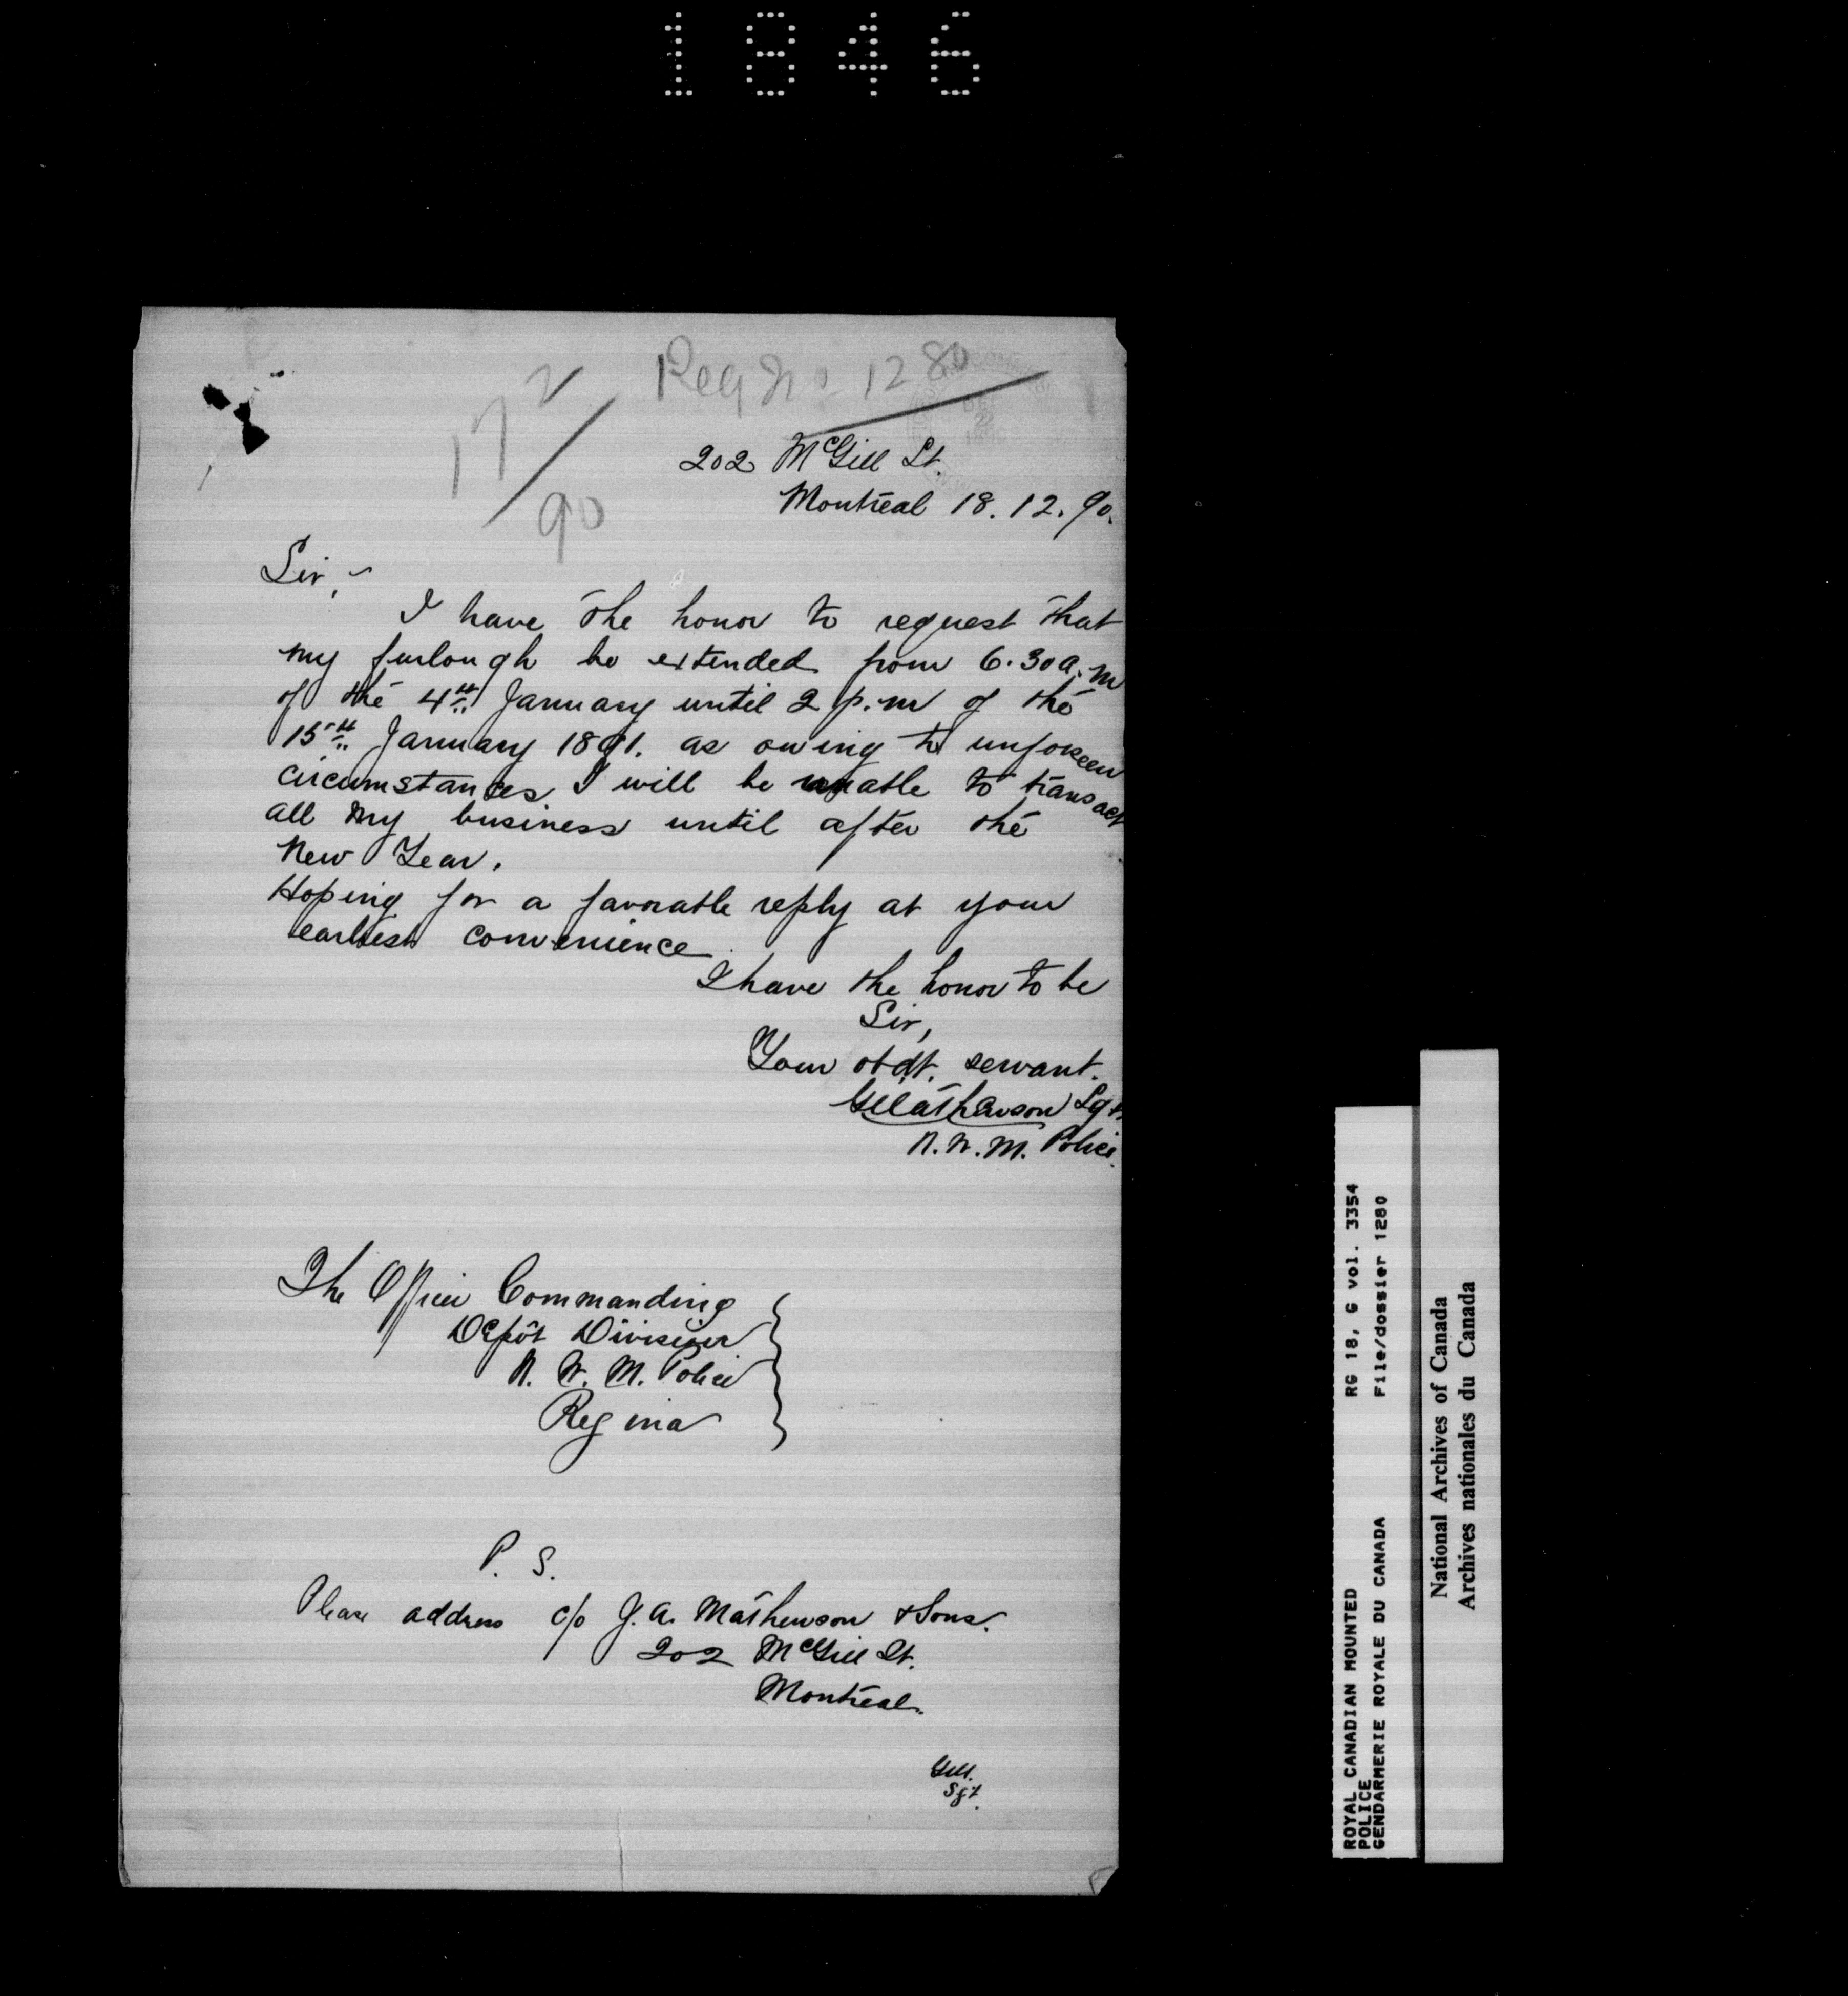 1846
Reg No 1280
17 2/90
202 McGill St.
Montreal 18.12.90.
Sir,
I have the honor to request that
my furlough be extended from 6.30 a.m
of the 4th January until 2 p.m of the
15th January 1891. as owing to unforseen
circumstances I will be unable to transact
all my business until after the
New Year.
Hoping for a favorable reply at your
earliest convenience
I have the honor to be
Sir,
Your obdt. servant.
Mathewson Sgt.
N.W.M. Police.
The Officer Commanding
Depôt Division
N. W. M. Police
Regina
P. S.
Please address c/o J. A. Mathewson & Sons.
202 McGill St.
Montreal.
Sgt.
ROYAL CANADIAN MOUNTED
POLICE
GENDARMERIE ROYALE DU CANADA
RG 18, G vol. 3354
File/dossier 1280
National Archives of Canada
Archives nationales du Canada